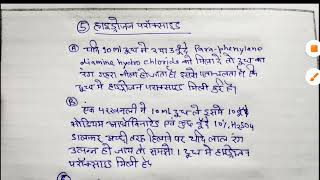 ⑤ हाइड्रोजन परॉक्साइड
Ⓐ यदि 10 ml दूध में 2 या 3 बूंदें Para-phenylene
diamine hydro chloride को मिला दें तो दूध का
रंग गहरा नीला हो जाता है। इससे पता चलता है कि
दूध में हाइड्रोजन परॉक्साइड मिली हुई है।
Ⓑ एक परखनली में 10 ml दूध ले इसमें 10 बूंदें
सोडियम एवं कुछ बूंदें 10% H₂SO₄
डालकर अच्छी तरह हिलाने पर यदि लाल रंग
उत्पन्न हो जाय तो समझो। दूध में हाइड्रोजन
परॉक्साइड मिली है।